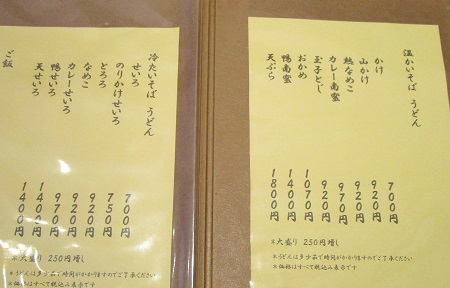 温かいそば うどん
かけ 700円
山かけ 920円
熱なめこ 920円
カレー南蛮 970円
玉子とじ 920円
おかめ 1070円
鴨南蛮 1400円
天ぷら 1800円
※大盛り 250円増し
※うどんは多少茹で時間がかかりますのでご了承ください
※価格はすべて税込み表示です
冷たいそば うどん
せいろ 700円
のりかけせいろ 750円
とろろ 920円
なめこ 920円
カレーせいろ 970円
鴨せいろ 1400円
天せいろ 1400円
ご飯
※大盛り 250円増し
※うどんは多少茹で時間がかかりますのでご了承ください
※価格はすべて税込み表示です